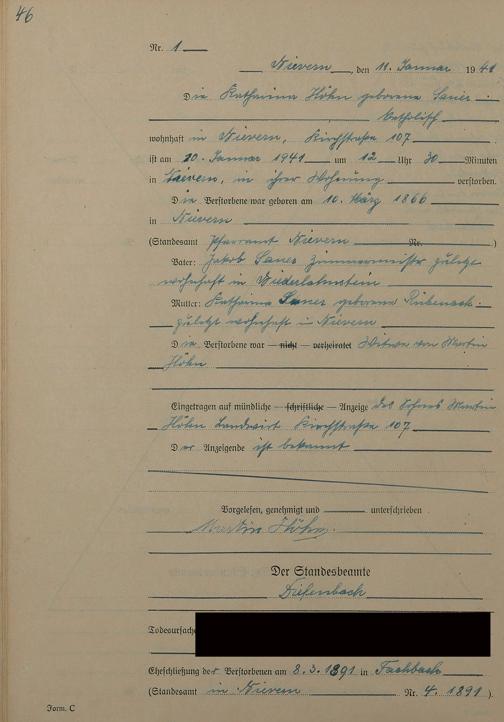 46
Nr. 1
Nievern, den 11. Januar 1941
Die Katharina Höhn geborene Sauer
katholisch
wohnhaft in Nievern, Kirchstraße 107
ist am 10. Januar 1941 um 12 Uhr 30 Minuten
in Nievern, in ihrer Wohnung verstorben.
Die Verstorbene war geboren am 10. März 1866
in Nievern
(Standesamt Pfarramt Nievern Nr. )
Vater: Jakob Sauer Zimmermeister zuletzt
wohnhaft in Niederlahnstein
Mutter: Katharina Sauer geborene
zuletzt wohnhaft in Nievern
Die Verstorbene war — nicht — verheiratet Witwe von Martin
Höhn
Eingetragen auf mündliche — schriftliche — Anzeige des Sohnes Martin
Höhn Landwirt Kirchstraße 107
Der Anzeigende ist bekannt
Vorgelesen, genehmigt und unterschrieben
Martin Höhn.
Der Standesbeamte
Diefenbach
Todesursache
Eheschließung der Verstorbenen am 8.3.1891 in Fachbach
(Standesamt in Nievern Nr. 4. 1891 ).
Form. C